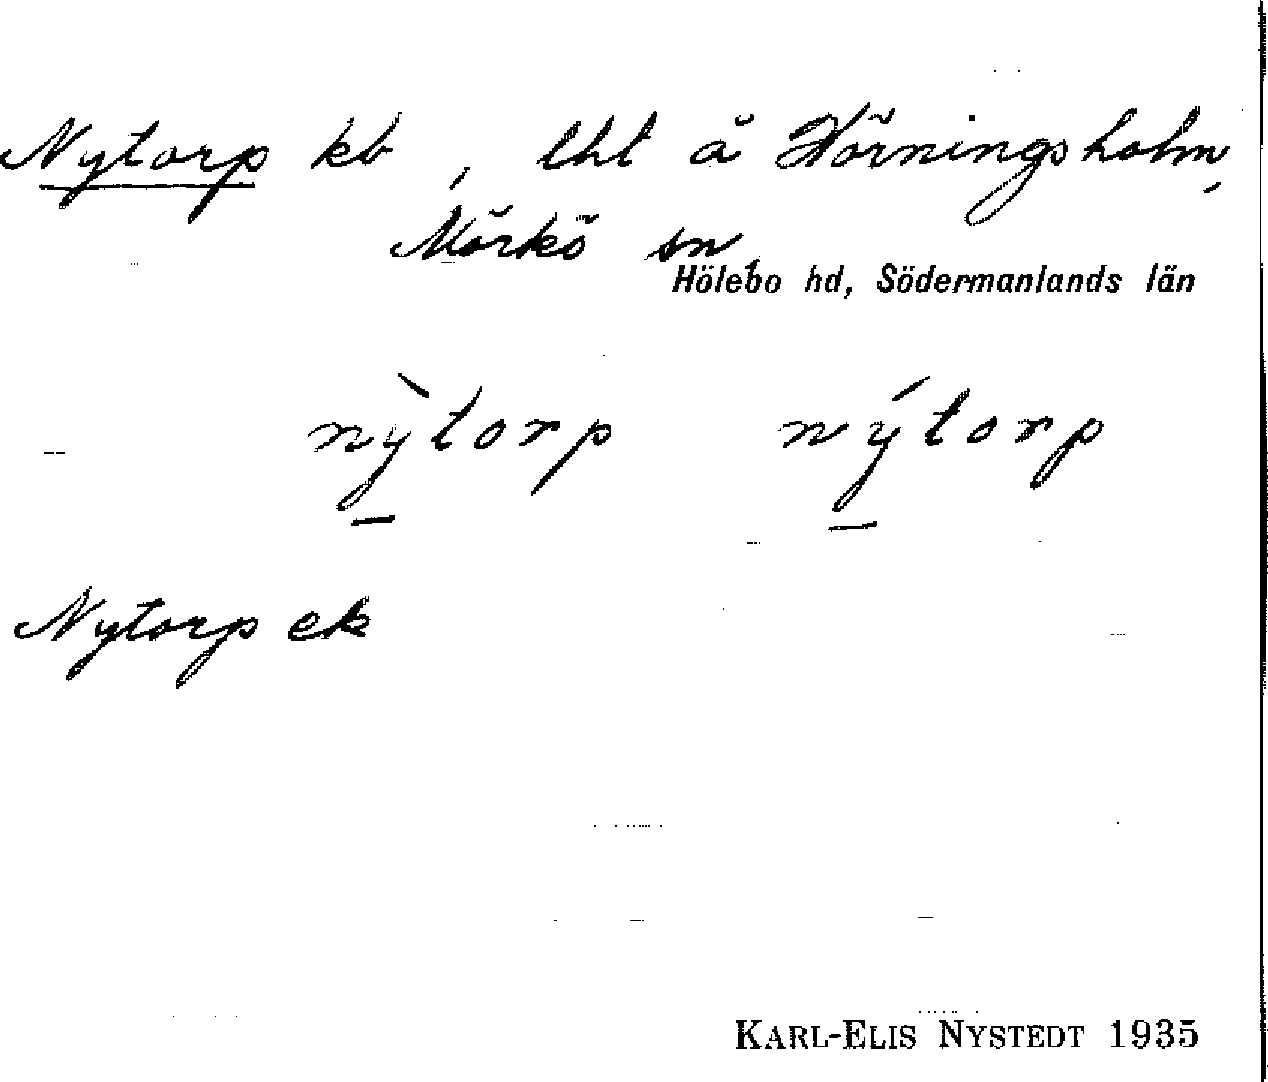 Nytorp kb, lht å Hörningsholm,
Mörkö sn,
Hölebo hd, Södermanlands län
nỳtorp nýtorp
Nytorp ek
KARL-ELIS NYSTEDT 1935